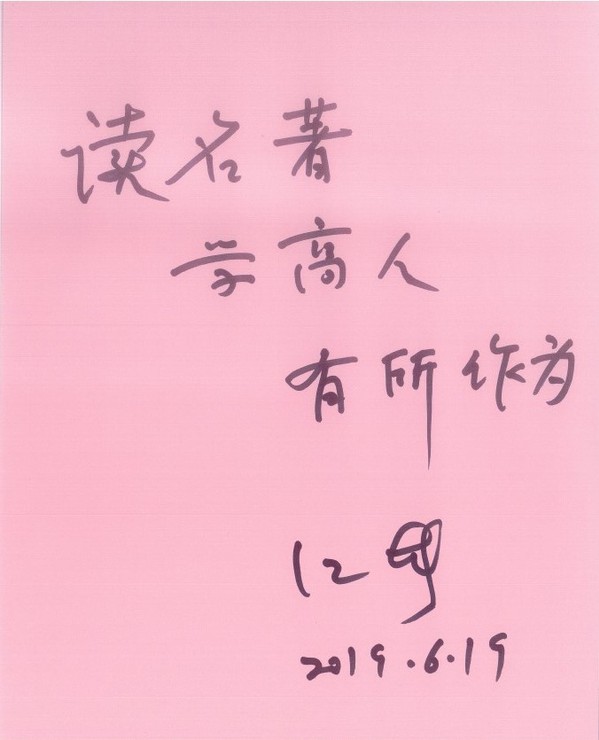 读名著
学高人
有所作为
2019.6.19